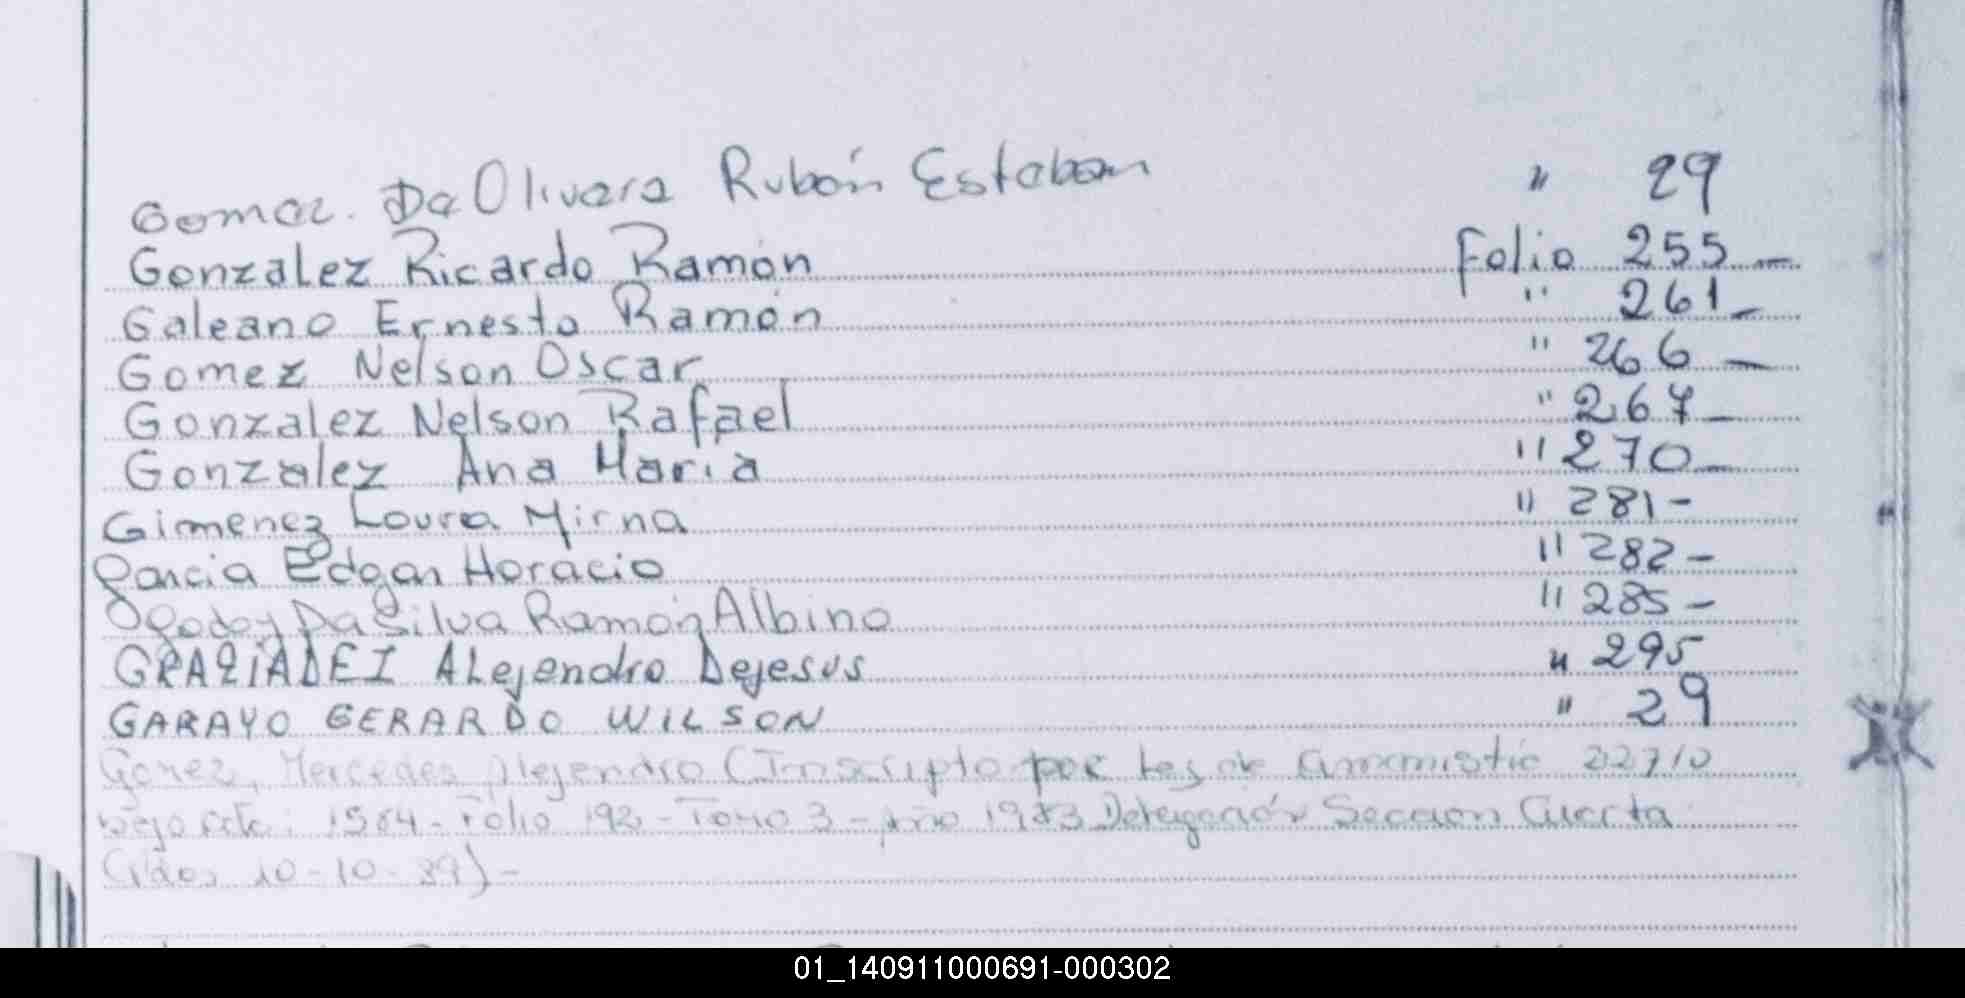 Gomez. Da Olivera Rubén Esteban " 29
Gonzalez Ricardo Ramón Folio 255 -
Galeano Ernesto Ramón " 261 -
Gomez Nelson Oscar " 266 -
Gonzalez Nelson Rafael " 267 -
Gonzalez Ana Maria " 270 -
Gimenez Loura Mirna " 281 -
Garcia Edgar Horacio " 282 -
Godoy Da Silva Ramón Albino " 285 -
GRAZIADEI ALejendro Dejesus " 295
GARAYO GERARDO WILSON " 29
Mercedes Alejendro (Inscripto por Ley de Ammistic 22710
bajo Acta: 1564 - Folio 192 - Tomo 3 - Año 1983 Delegación Sección Cuarta
10 - 10 - 89) -
01_140911000691-000302